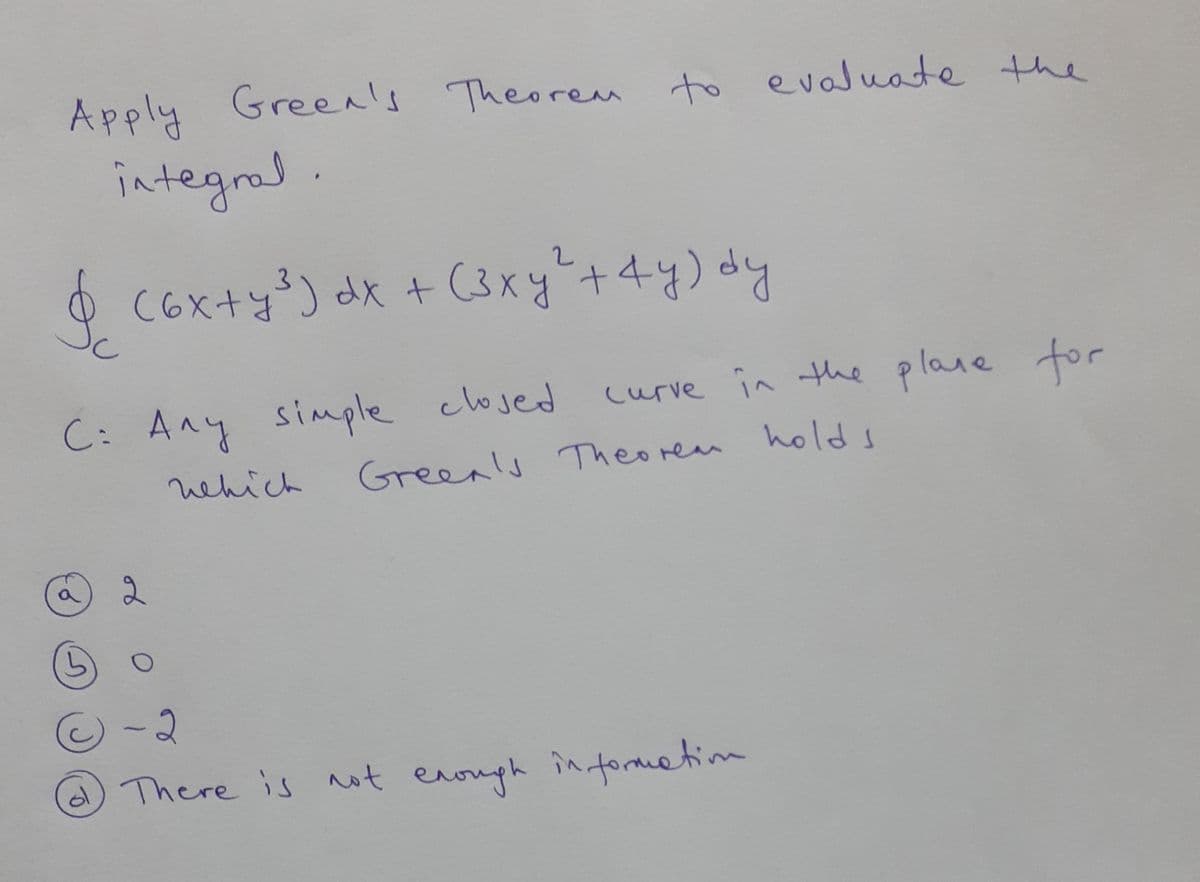 Apply Green's Theorem to evaluate the
integral.
∮_C (6x+y³) dx + (3xy²+4y) dy
C: Any simple closed curve in the plane for
which Green's Theorem holds
(a) 2
(b) 0
(c) -2
(d) There is not enough information